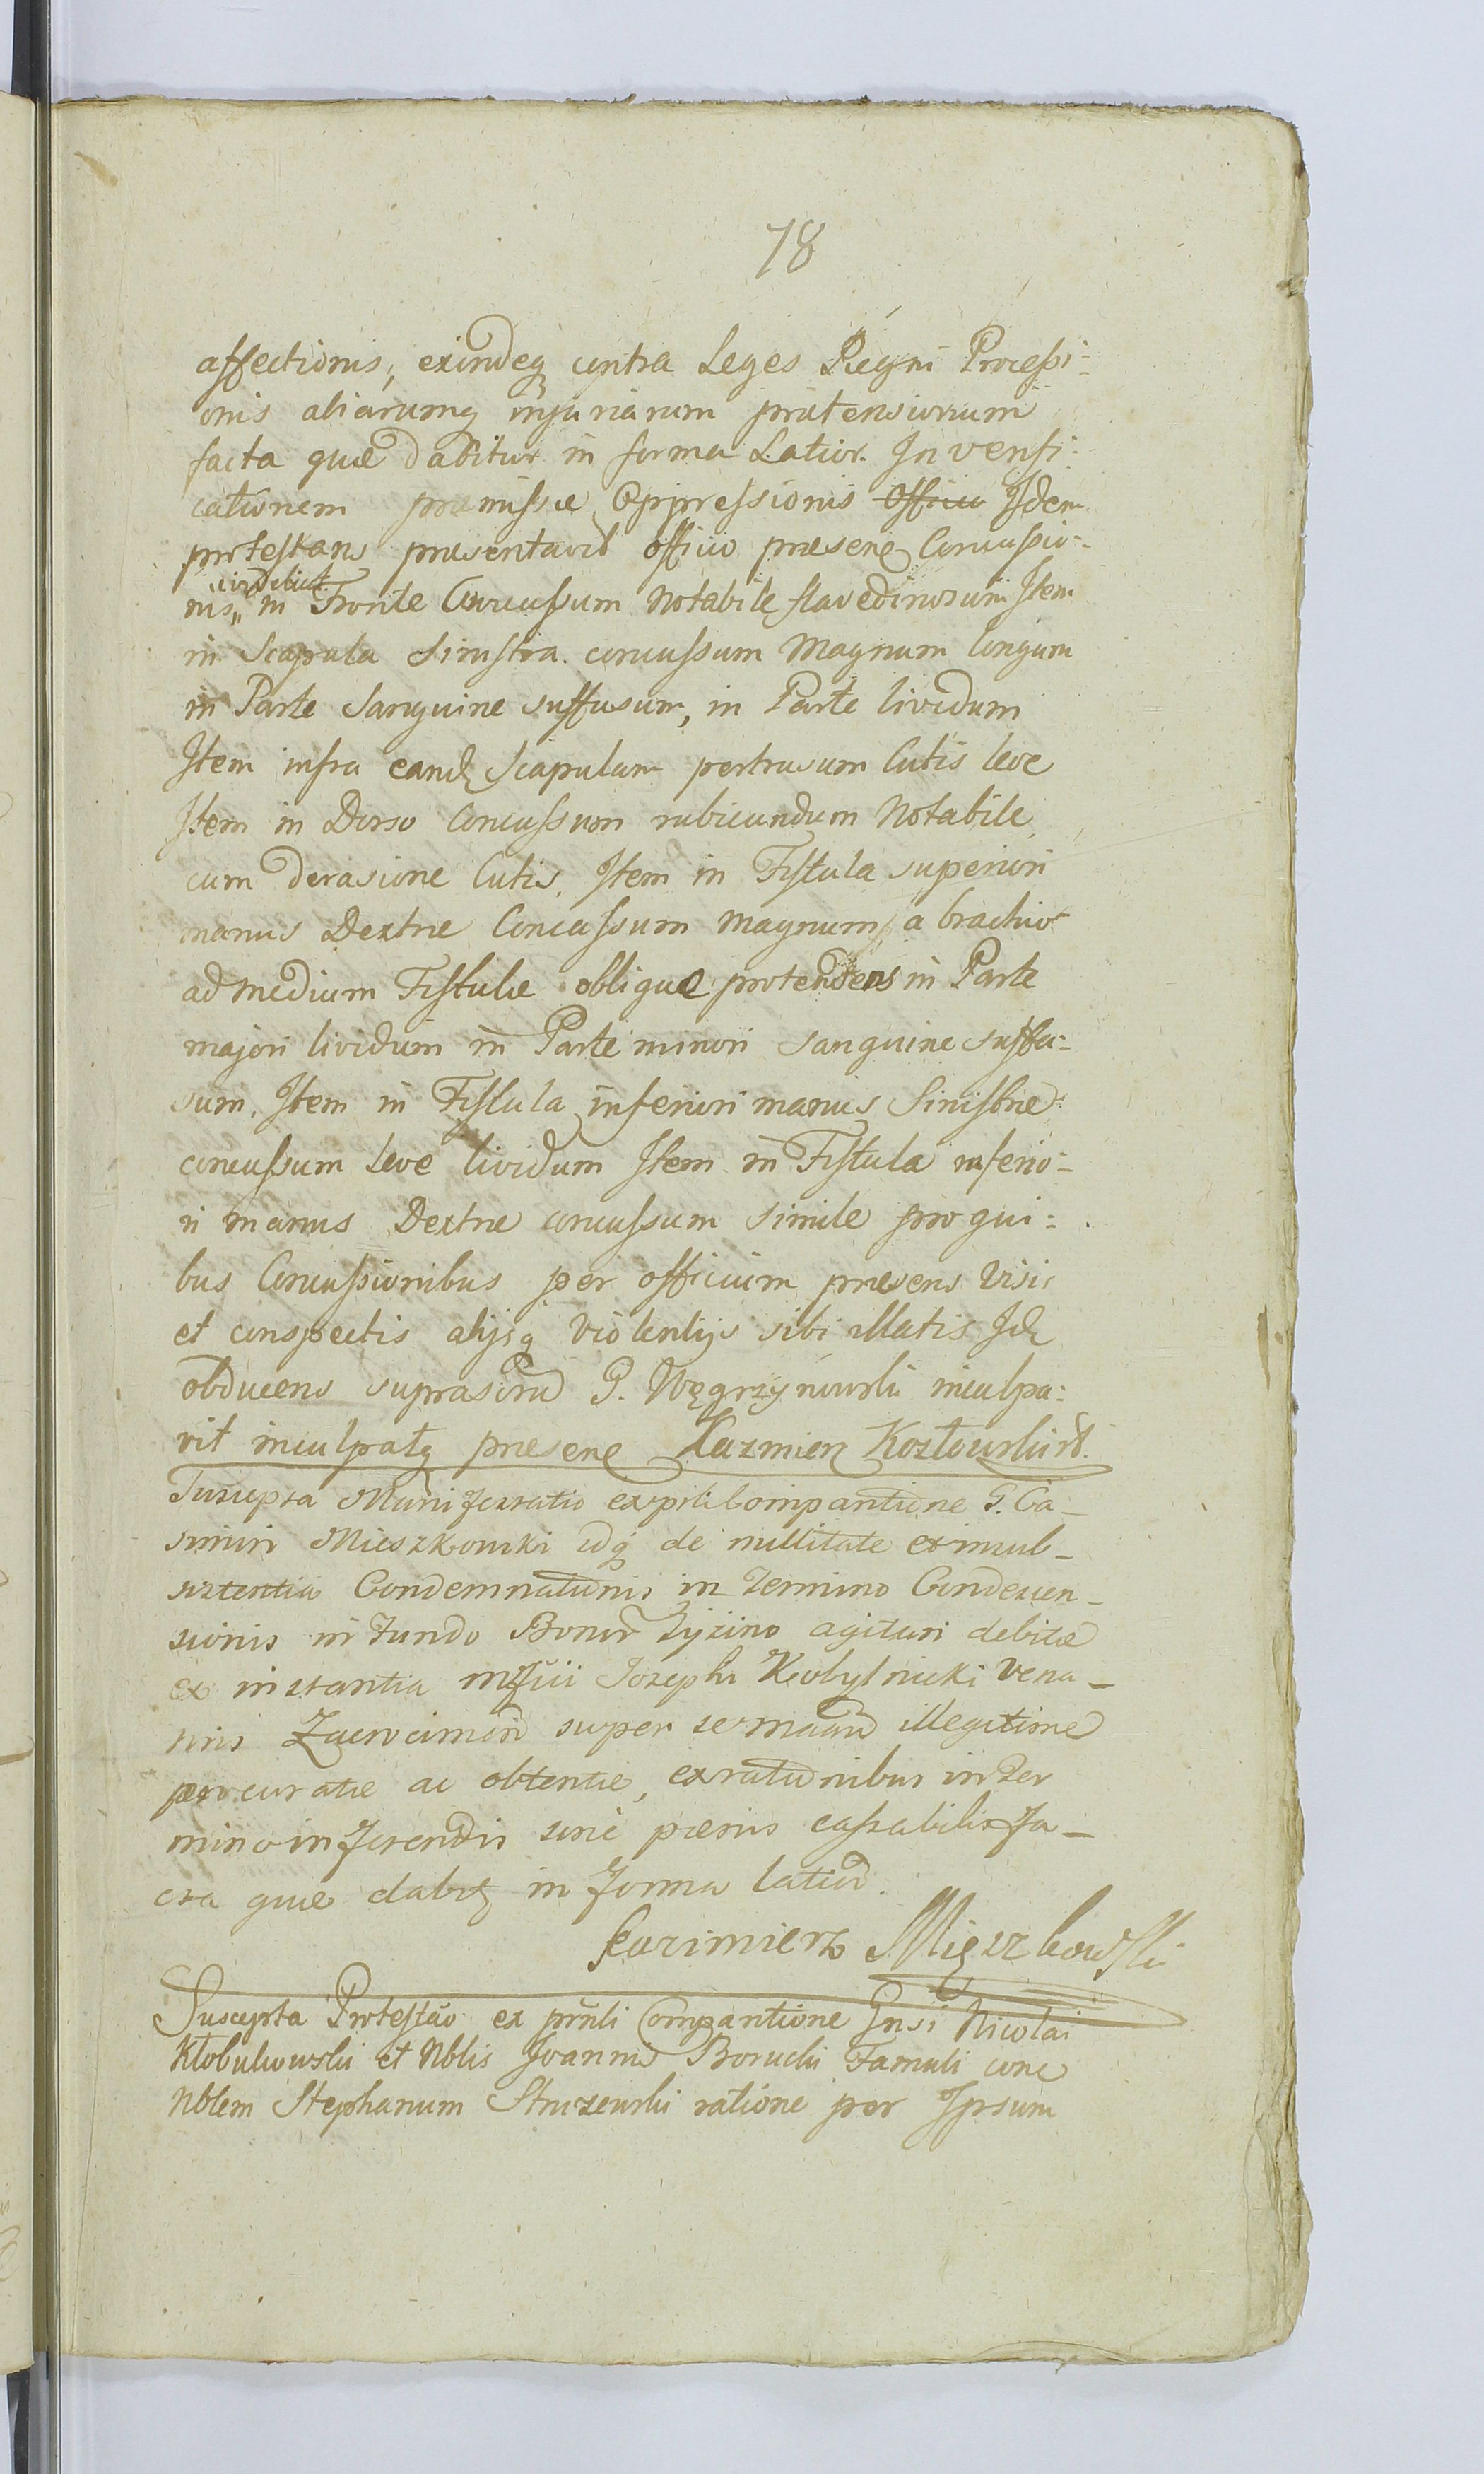 78
affectionis, exindeq contra Leges Regni Processi=
onis aliarumq injuriarum prætensionum
facta quæ dabitur in forma Latior. In verifi=
cationem præmissæ Oppressionis Officio Idem
protestans præsentavit officio præsenę Concussio=
videlicet
nis,, in Fronte Concussum Notabile flavedinosum Item
in Scapula Sinistra. concussum Magnum longum
in Parte Sanguine suffusum, in Parte lividum
Item infra eandę Scapulam pertrusum Cutis leve
Item in Dorso Concussum rubicundum Notabile
cum derasione Cutis, Item in Fistula superiori
manus Dextræ Concussum Magnum, a brachio
ad medium Fistulæ oblique protendens in Parte
majori lividum in Parte minori sanguine suffu=
sum. Item in Fistula inferiori manus Sinistræ
concussum Leve lividum Item in Fistula inferio=
ri manus Dextræ concussum simile pro qui=
bus Concussionibus per officium præsens visis
et conspectis alijsq violentijs sibi illatis Idę
obducens suprascrip G. Węgrzynowski inculpa=
vit inculpatq præsenę Kazmierz Kozłowski
Suscepta Manifestatio ex prti Comparitione G. Ca_
simiri Mieszkowski idq de nullitate et insub_
sistentia Condemnationis in Termino Condescen_
sionis in Fundo Bonor agitari debitæ
ex instantia Josephi Kobylnicki Vena_
super illegitime
procuratæ ac obtentæ, ex rationibus in Ter
mino inferendis sine pœnis cassabilis fa_
cta quæ dabitę in forma latiori.
Kazimierz Mięszkowski
Suscepta Protestão ex prñti Comparitione Gnsi Nicolai
Kłobukowski et Nblis Joannis Borucki Famuli conę
Nblem Stephanum Struzewski ratione per Ipsum